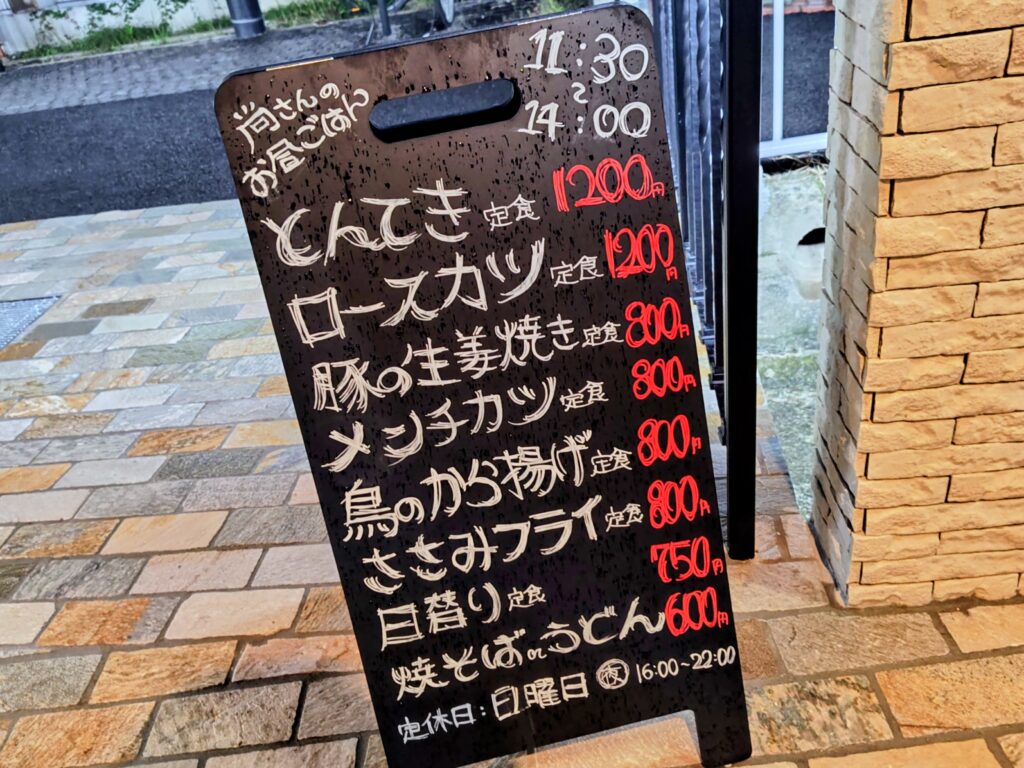 尚さんの
お昼ごはん
11:30
~
14:00
とんてき 定食 1200円
ロースカツ 定食 1200円
豚の生姜焼き 定食 800円
メンチカツ 定食 800円
鳥のから揚げ 定食 800円
ささみフライ 定食 800円
日替り 定食 750円
焼そば or うどん 600円
定休日:日曜日 ㊰ 16:00~22:00